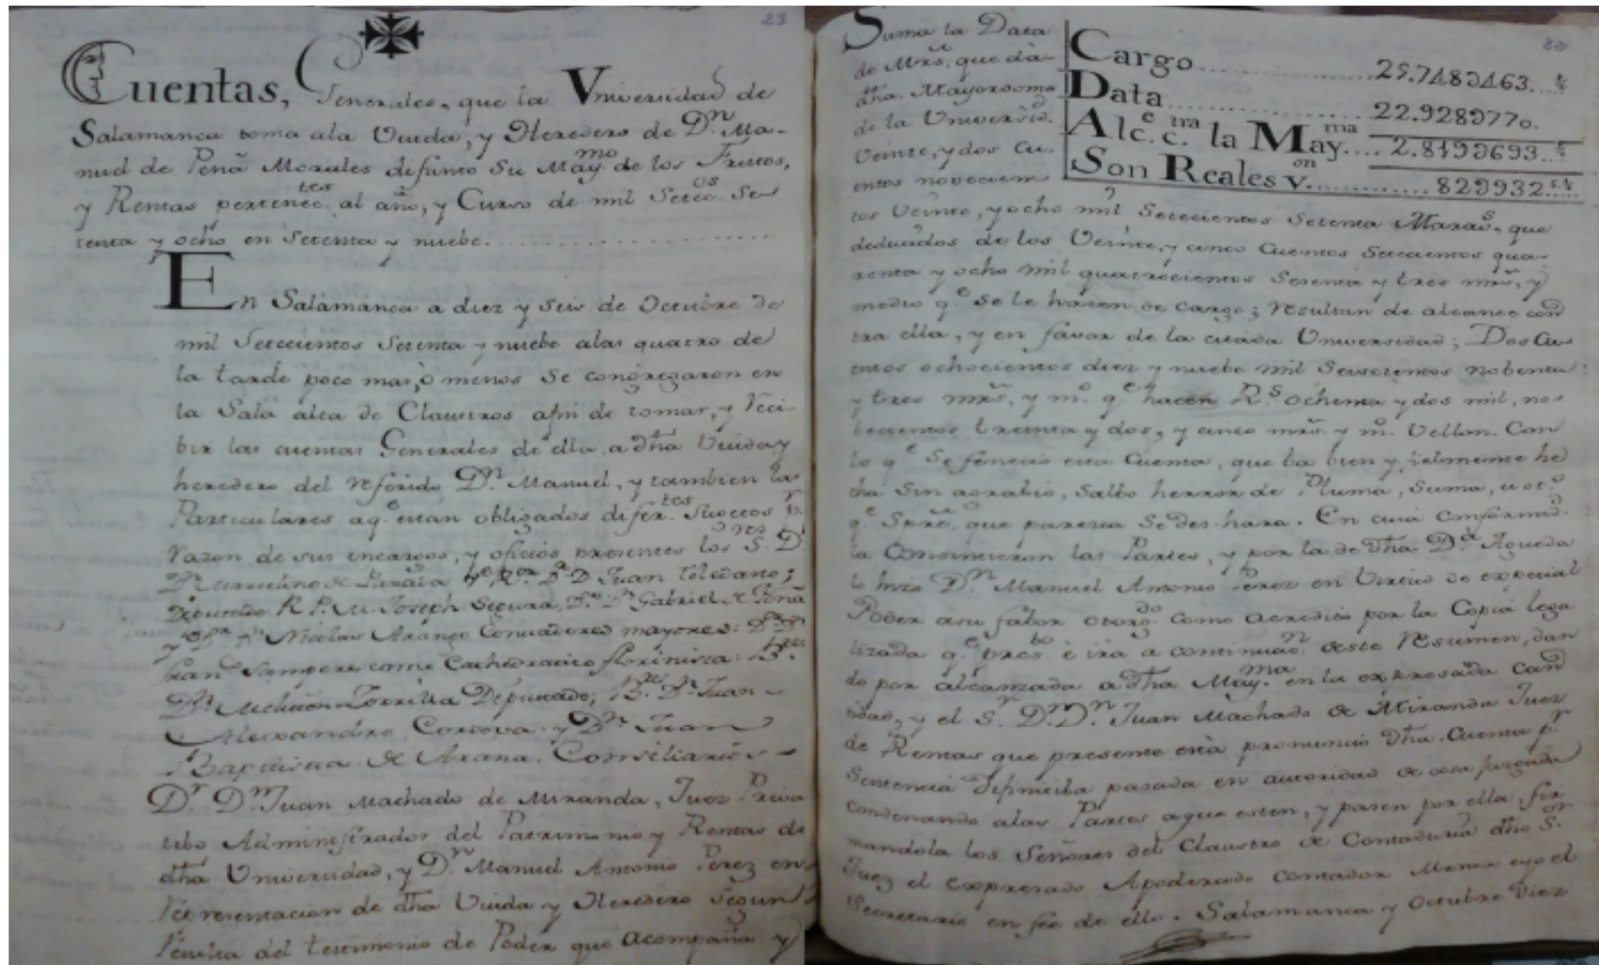 23
Cuentas, Generales, que la Vniversidad de
Salamanca toma ala Viuda, y Heredero de Dn. Ma-
nuel de Peña Morales difunto su Maymo. de los Frutos,
y Rentas pertenectes. al año, y Curso de mil Setecos. Se-
tenta y ocho en Setenta y nuebe.
En Salamanca a diez y seis de Octubre de
mil Setecientos Setenta y nuebe alas quatro de
la tarde poco mas, ò menos se congregaron en
la Sala alta de Claustros afin de tomar, y reci-
bir las cuentas Generales de ella, a dha Viuda y
heredero del referido Dn. Manuel, y tambien las
Particulares a qe. estan obligados diferentes. Sugetos pr.
razon de sus encargos, y oficios presentes los Sres. D.
Dn. Marcelino de Dr. D. Juan Toledano;
Diputado R. P. M. Joseph Segura, Dn. Gabriel de Peña
y Nicolas Arango Contadores mayores:
Franco. Sampere como Cathedratico florinista:
Dn. Melchor Zorrilla Deputado; Dn. Juan
Alexandro Cordova y Dn. Juan
Baptista de Arana. Consiliarios
Dr. Dn. Juan Machado de Miranda, Juez Priva
tibo Administrador del Patrimonio y Rentas de
dha Universidad, y Dn. Manuel Antonio Perez en
representacion de dha Viuda y Heredero segun
resulta del testimonio de Poder que acompaña y
Suma la Data
de Mrs. que dà
dha. Mayordoma
de la Universid.
Veinte, y dos Cu-
entos novecien-
Cargo 25.748D463.
Data 22.928D770.
Alce. ctra. la Mayma. 2.819D693.
Son Reales von. 82D932
tos Veinte, y ocho mil Setecientos Setenta Maravs. que
deducidos de los Veinte, y cinco Cuentos Setecientos qua-
renta y ocho mil quatrocientos Sesenta y tres mrs., y
medio qe. se le hacen de cargo; resultan de alcance con
tra ella, y en favor de la citada Universidad; Dos Cu-
entos ochocientos diez y nuebe mil Seiscientos nobenta
y tres mrs., y mo. qe. hacen Rs. ochenta y dos mil, no-
becientos treinta y dos, y cinco mrs. y mo. Vellon. Con
lo qe. se fenecio esta Cuenta, que ba bien y fielmente he
cha sin agrabio, salbo herror de Pluma, Suma, u otro.
qe. Spre. que parezca se des-hara. En cuia conformd.
la consintieron las Partes, y por la de dha. Da. Agueda
lo hizo Dn. Manuel Antonio Perez en virtud de especial
Poder a su fabor otorgdo. como acreditò por la Copia lega
lizada qe. è irà a continuaon. de este resumen, dan
do por alcanzada a dha Mayma. en la expresada can
tidad, y el Sr. Dr. Dn. Juan Machado de Miranda Juez
de Rentas que presente està pronunciò dha. Cuenta pr.
Sentencia difinitiba pasada en autoridad de cosa juzgada
condenando alas Partes a que esten, y pasen por ella fir
mandola los Señores del Claustro de Contaduria dho Sor.
Juez el expresado Apoderado Contador Menor e yo el
Secretario en fee de ello. Salamanca y Octubre Diez